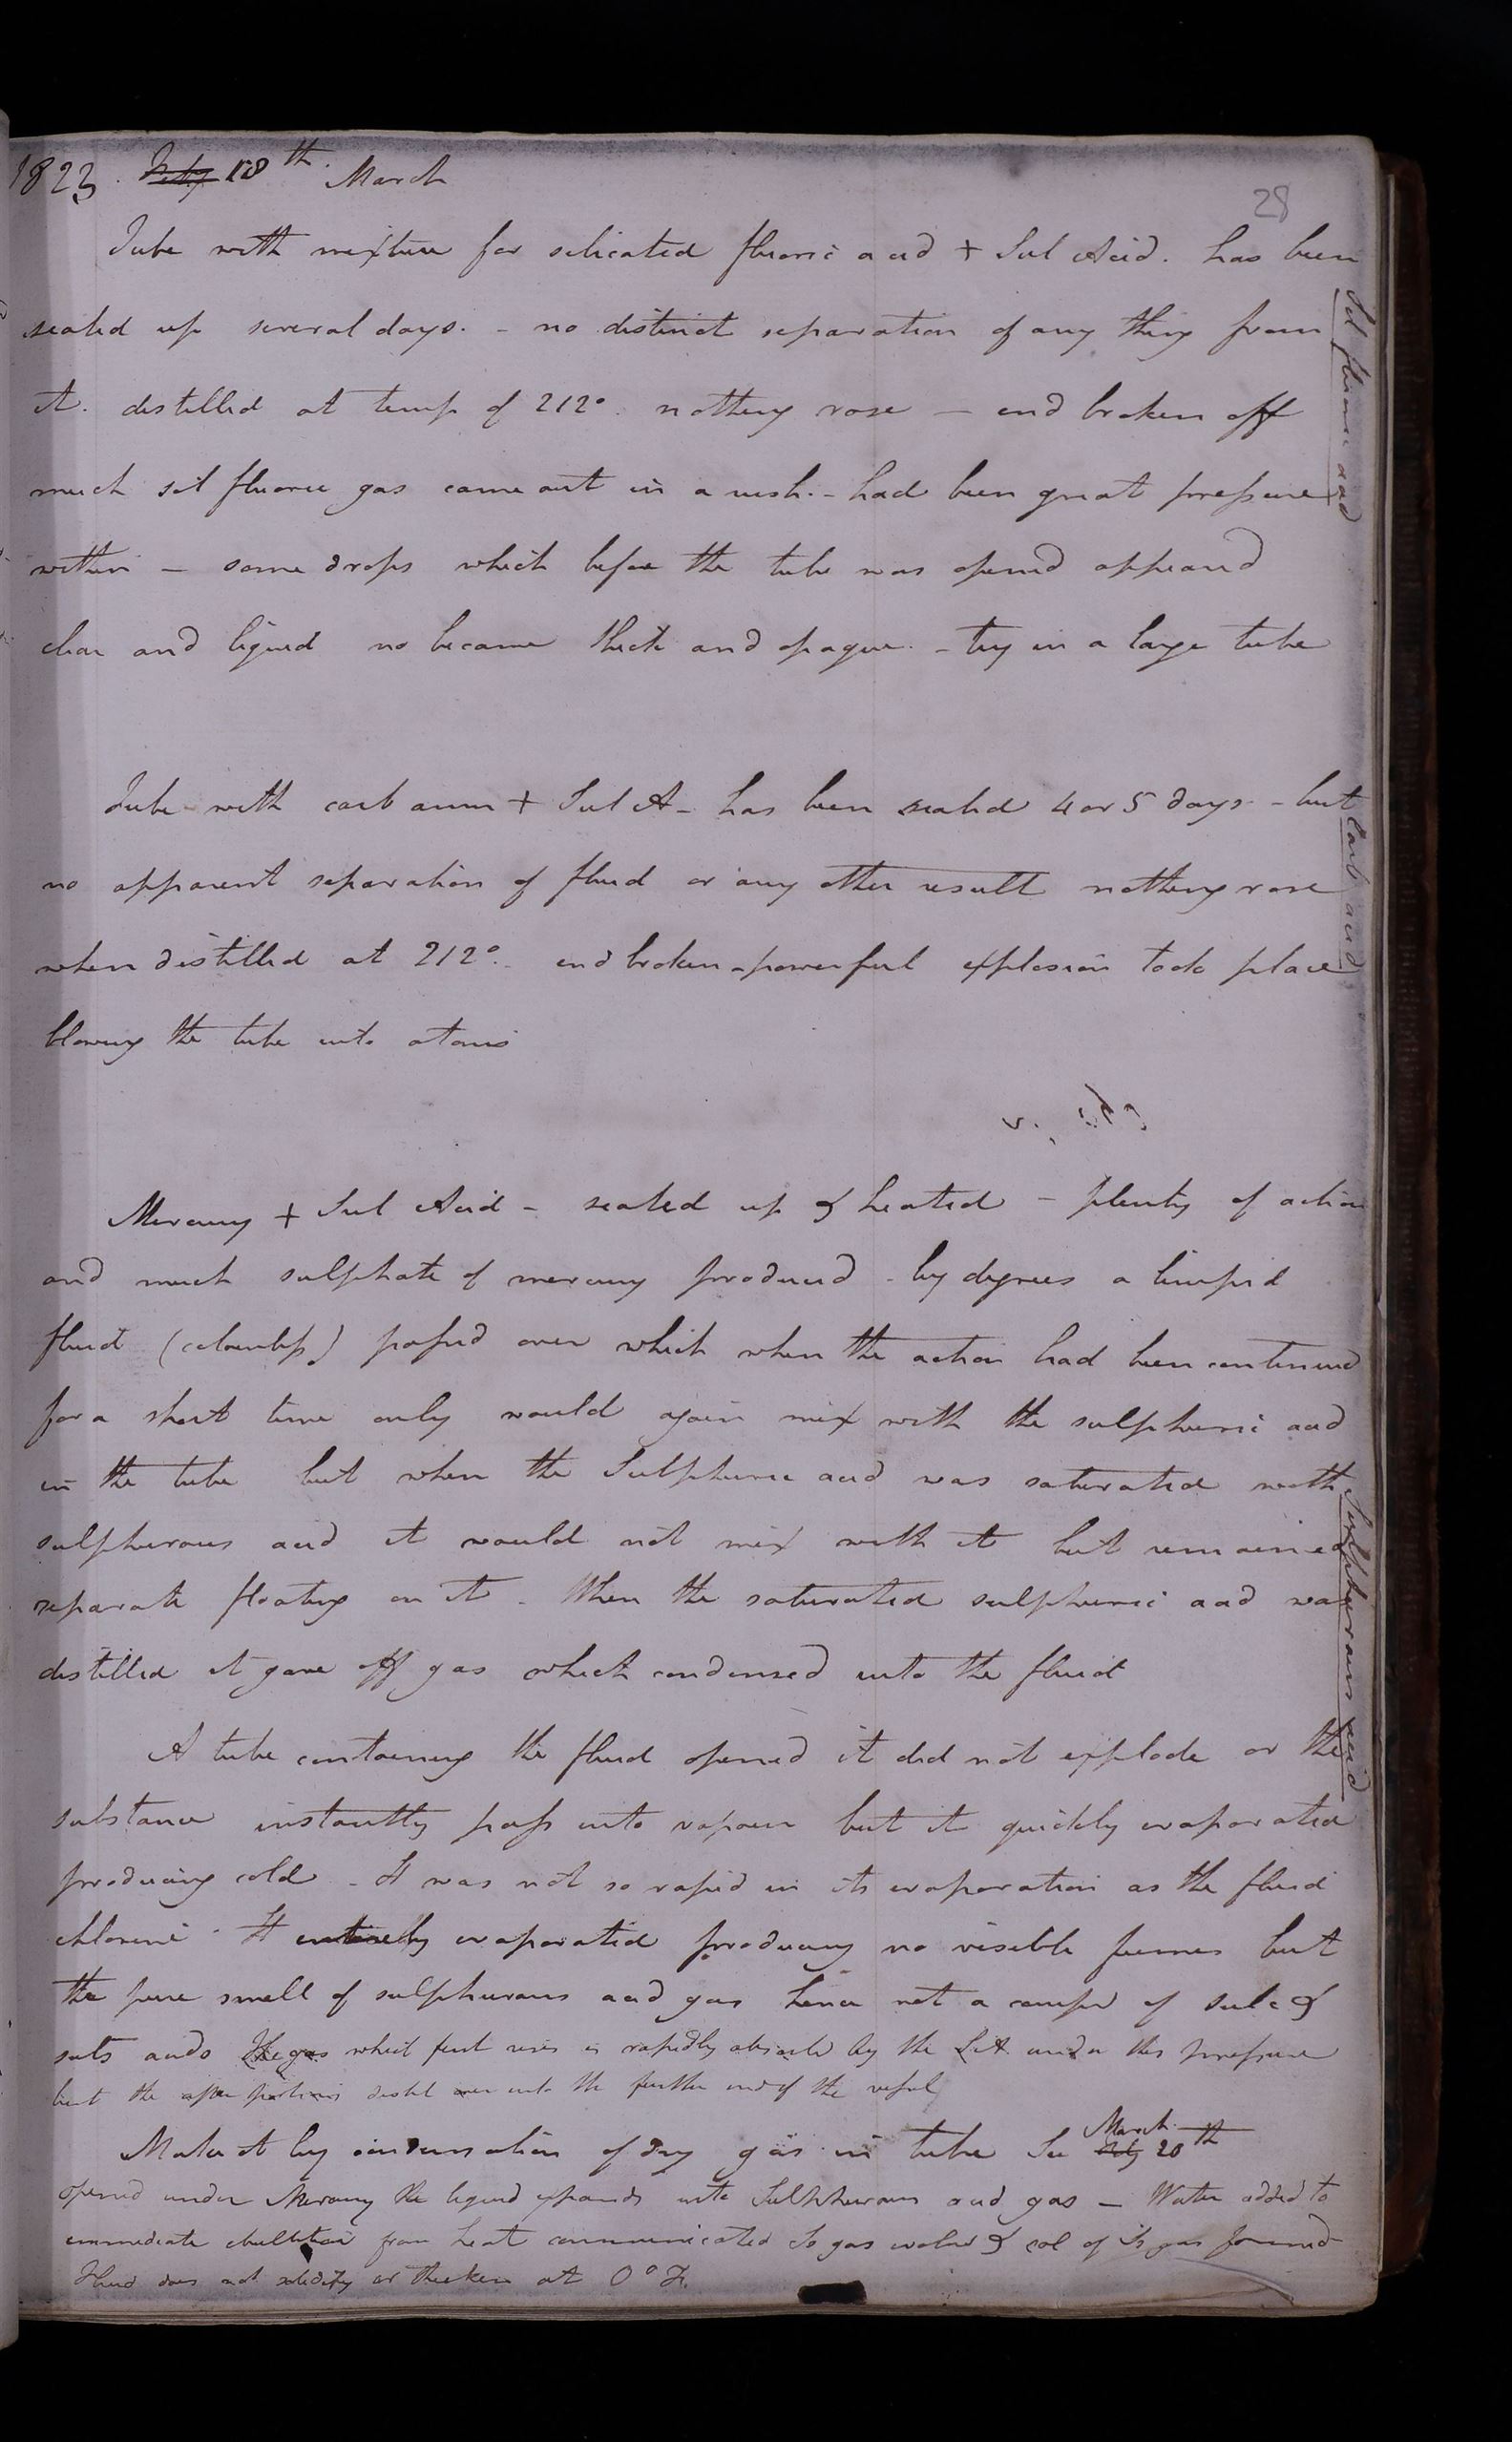 1823. Feby 18th. March
28
Tube with mixture for silicated fluoric acid + Sul Acid. has been
sealed up several days. - no distinct separation of any thing from
it. distilled at temp of 212°. nothing rose — end broken off
much sil fluoric gas came out in a rush. - had been great pressure
within — some drops which before the tube was opened appeard
clear and liquid no became thick and opaque. - try in a large tube
Sil fluoric acid
Tube with carb amm + Sul A - has been sealed 4 or 5 days - but
no apparent separation of fluid or any other result nothing rose
when distilled at 212°. - end broken - powerful explosion took place
blowing the tube into atoms
Carb acid
Mercury + Sul Acid - sealed up & heated - plenty of action
and much sulphate of mercury produced - by degrees a limpid
fluid (colourless) passed over which when the action had been continued
for a short time only would again mix with the sulphuric acid
in the tube but when the Sulphuric acid was saturated with
sulphurous acid it would not mix with it but remained
separate floating on it. When the saturated sulphuric acid was
distilled it gave off gas which condensed into the fluid
Sulphurous acid
A tube containing the fluid opened it did not explode or the
substance instantly pass into vapour but it quickly evaporated
producing cold - It was not so rapid in its evaporation as the fluid
chlorine. It entirely evaporated producing no visible fumes but
the pure smell of sulphurous acid gas hence not a compd of sulc &
suls acids The gas which first rises is rapidly absorbed by the S A under this pressure
but the after portions distil over into the further end of the vessel
Make it by condensation of dry gas in tube See Feby March 20th
Opened under Mercury the liquid expands into Sulphurous acid gas — Water added to
immediate ebullition from heat communicated So gas evolved & sol of gas formed
Fluid does not solidify or thicken at 0° F.